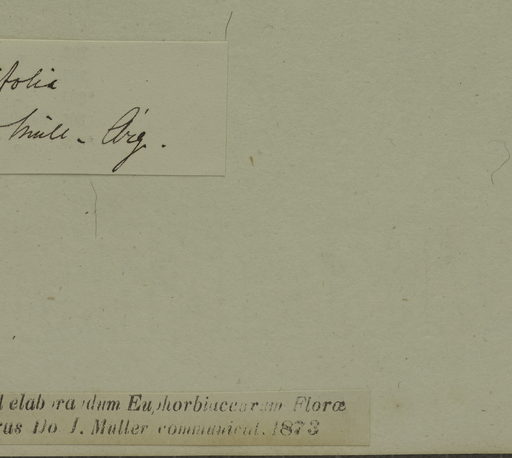 ifolia
Müll - Arg.
d elaborandum Euphorbiacearum Floræ
rus Do J. Muller communicat. 1873